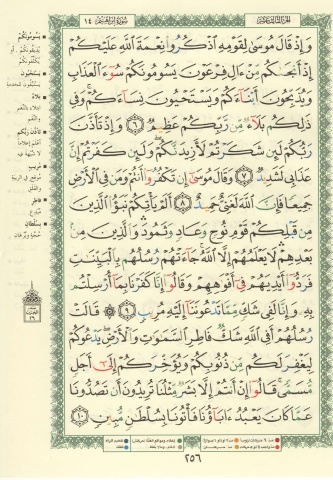 الجزء الثالث عشر
سورة إبراهيم ١٤
وَإِذْ قَالَ مُوسَىٰ لِقَوْمِهِ ٱذْكُرُوا۟ نِعْمَةَ ٱللَّهِ عَلَيْكُمْ
إِذْ أَنجَىٰكُم مِّنْ ءَالِ فِرْعَوْنَ يَسُومُونَكُمْ سُوٓءَ ٱلْعَذَابِ
وَيُذَبِّحُونَ أَبْنَآءَكُمْ وَيَسْتَحْيُونَ نِسَآءَكُمْ ۚ وَفِى
ذَٰلِكُم بَلَآءٌ مِّن رَّبِّكُمْ عَظِيمٌ ٦ وَإِذْ تَأَذَّنَ
رَبُّكُمْ لَئِن شَكَرْتُمْ لَأَزِيدَنَّكُمْ ۖ وَلَئِن كَفَرْتُمْ إِنَّ
عَذَابِى لَشَدِيدٌ ٧ وَقَالَ مُوسَىٰٓ إِن تَكْفُرُوٓا۟ أَنتُمْ وَمَن فِى ٱلْأَرْضِ
جَمِيعًا فَإِنَّ ٱللَّهَ لَغَنِىٌّ حَمِيدٌ ٨ أَلَمْ يَأْتِكُمْ نَبَؤُا۟ ٱلَّذِينَ
مِن قَبْلِكُمْ قَوْمِ نُوحٍ وَعَادٍ وَثَمُودَ ۛ وَٱلَّذِينَ مِنۢ
بَعْدِهِمْ ۛ لَا يَعْلَمُهُمْ إِلَّا ٱللَّهُ ۚ جَآءَتْهُمْ رُسُلُهُم بِٱلْبَيِّنَٰتِ
فَرَدُّوٓا۟ أَيْدِيَهُمْ فِىٓ أَفْوَٰهِهِمْ وَقَالُوٓا۟ إِنَّا كَفَرْنَا بِمَآ أُرْسِلْتُم
بِهِۦ وَإِنَّا لَفِى شَكٍّ مِّمَّا تَدْعُونَنَآ إِلَيْهِ مُرِيبٍ ٩ ۞ قَالَتْ
رُسُلُهُمْ أَفِى ٱللَّهِ شَكٌّ فَاطِرِ ٱلسَّمَٰوَٰتِ وَٱلْأَرْضِ ۖ يَدْعُوكُمْ
لِيَغْفِرَ لَكُم مِّن ذُنُوبِكُمْ وَيُؤَخِّرَكُمْ إِلَىٰٓ أَجَلٍ
مُّسَمًّى ۚ قَالُوٓا۟ إِنْ أَنتُمْ إِلَّا بَشَرٌ مِّثْلُنَا تُرِيدُونَ أَن تَصُدُّونَا
عَمَّا كَانَ يَعْبُدُ ءَابَآؤُنَا فَأْتُونَا بِسُلْطَٰنٍ مُّبِينٍ ١٠
يسومونكم
يستحيون
بلاء
تأذن ربكم
مريب
فاطر
بسلطان
٢٥٦